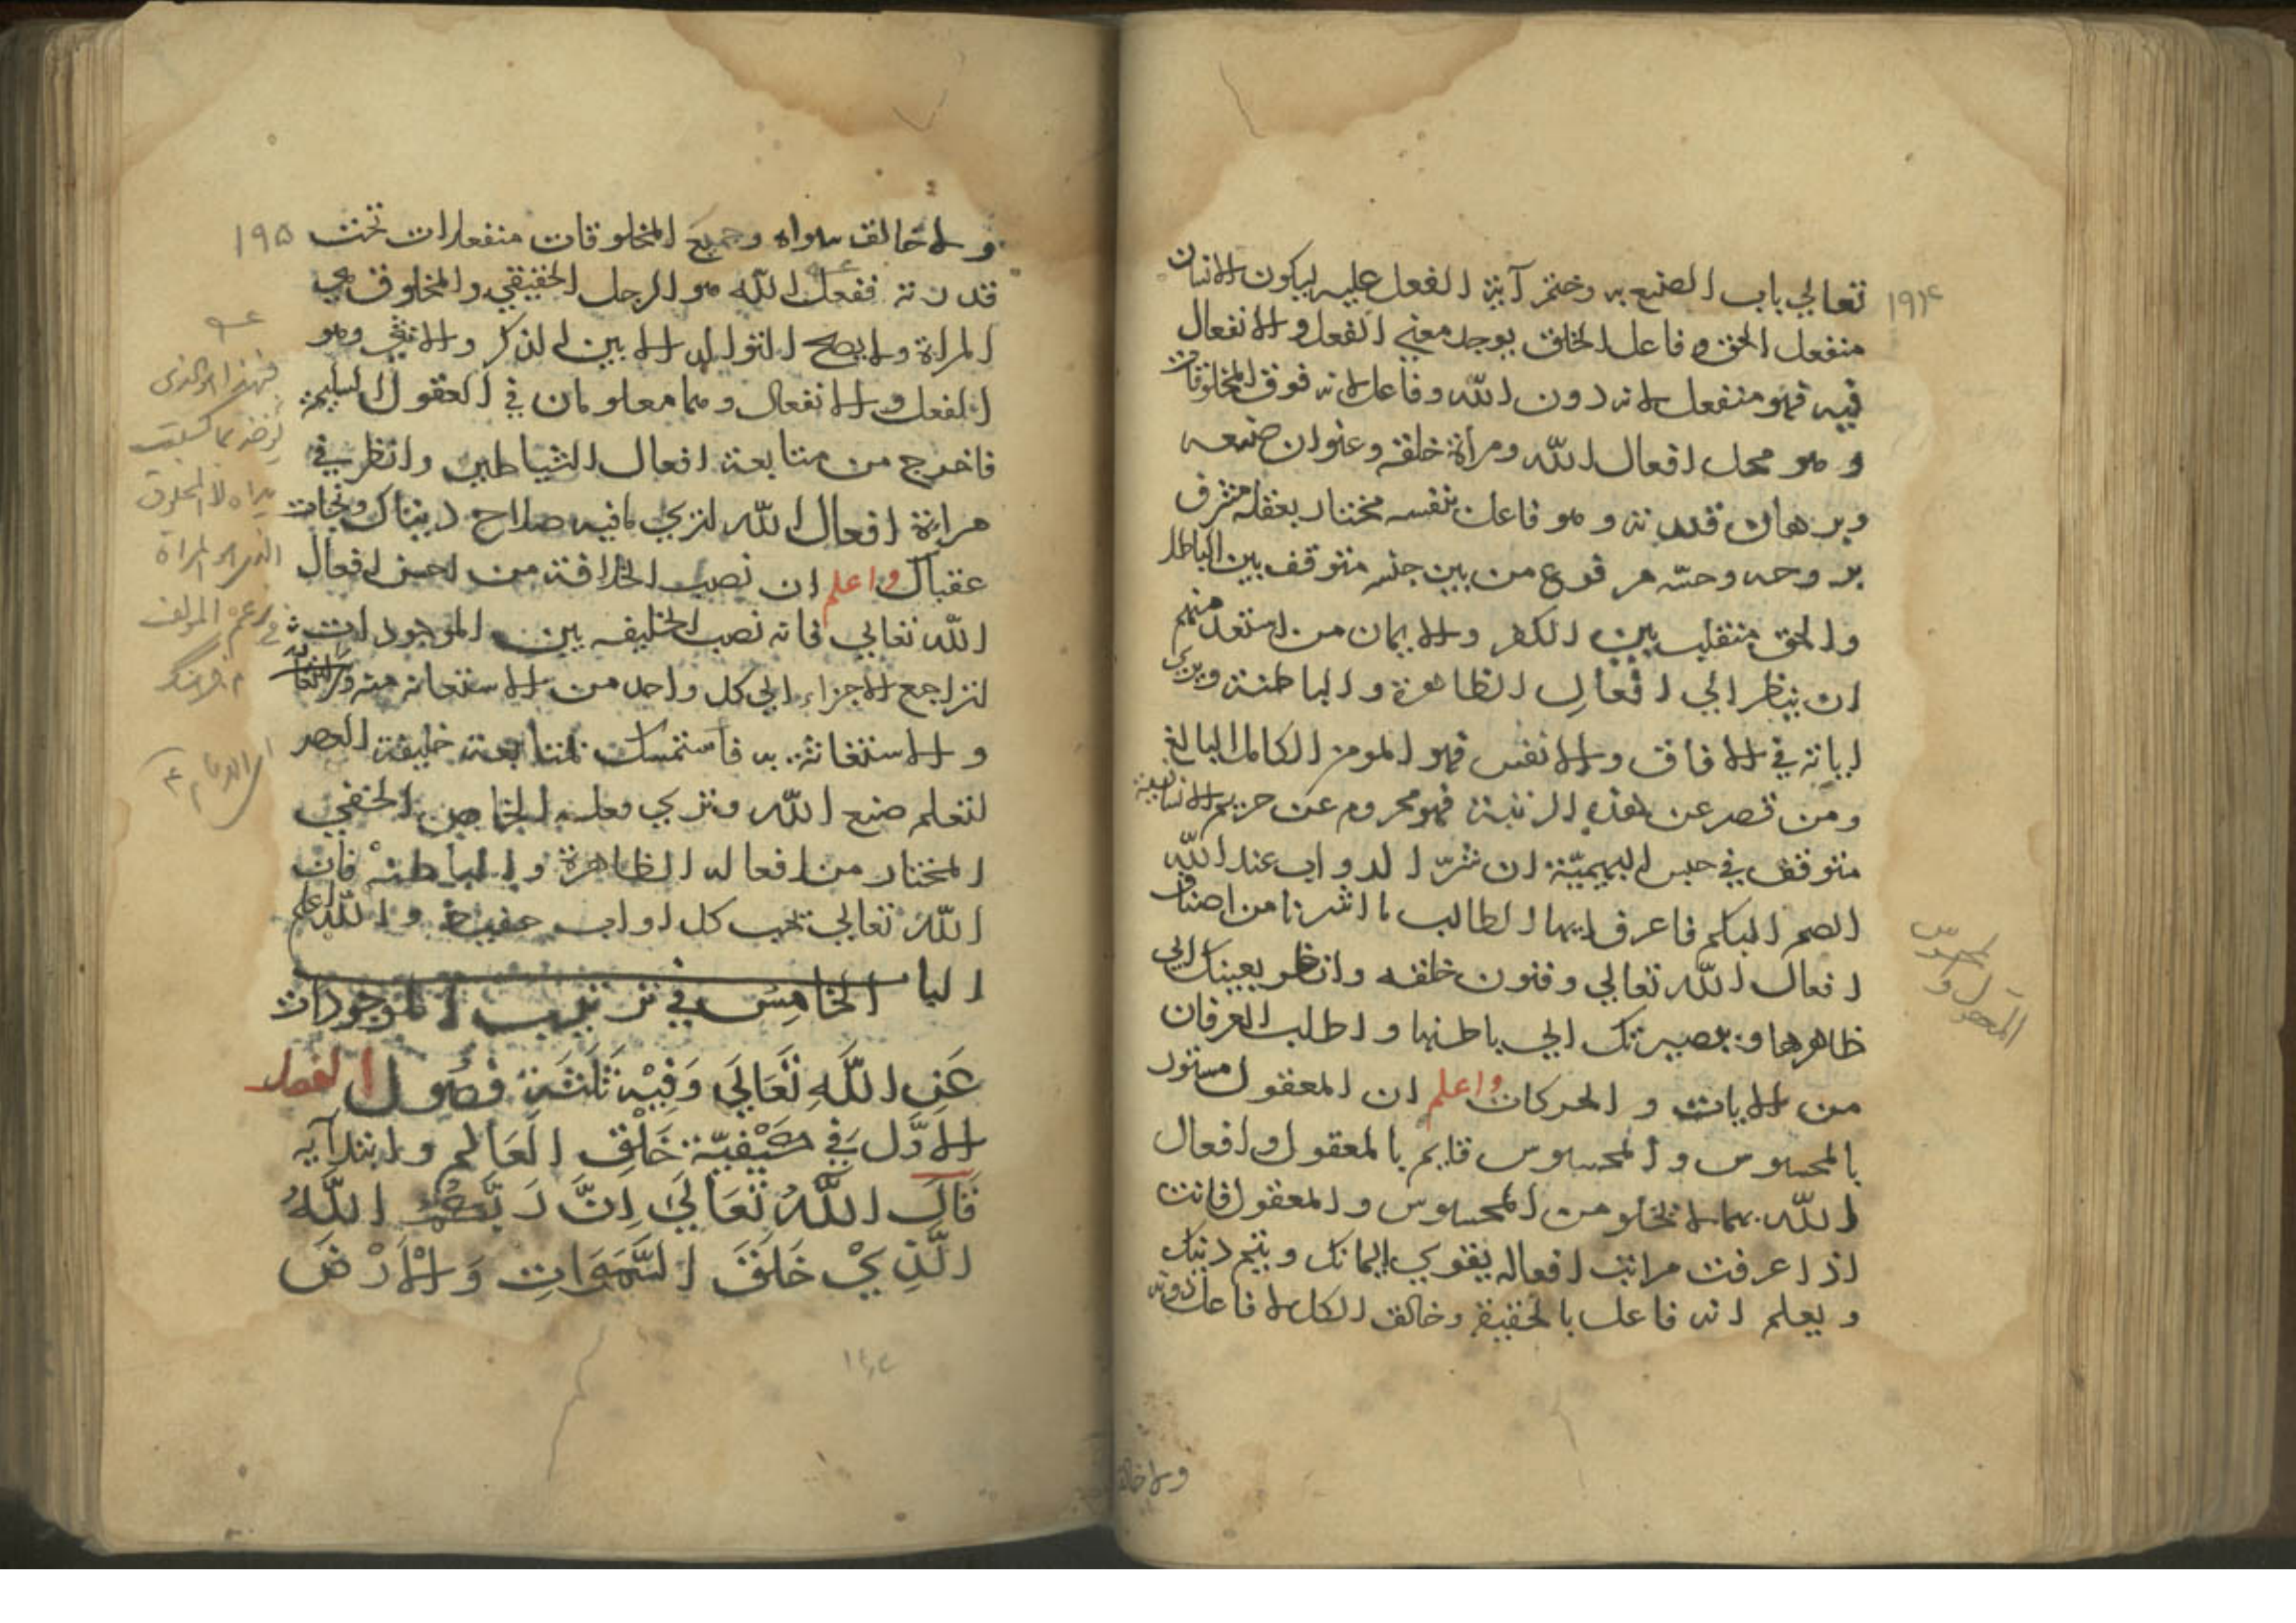 ۱۹۴
تعالي باب الصنع به وختم آية الفعل عليه ليكون الانسان
منفعل الحق وفاعل الخلق يوجد معني الفعل والانفعال
فيه فهو منفعل لانه دون الله وفاعل لانه فوق المخلوقات
و هو محل افعال الله ومراة خلقه وعنوان صنعه
وبرهان قدرته و هو فاعل بنفسه مختار بعقله مشرف
بروحه وحسه مرفوع من بين جنسه متوقف بين الباطل
والحق متقلب بين الكفر والايمان من استعد منهم
ان ينظر الي افعال الظاهرة والباطنة ويري
اياته في الافاق والانفس فهو المومن الكامل البالغ
ومن قصر عن هذه الرتبة فهو محروم عن حريم الانسانية
متوقف في حبس البهيمية ان شر الدواب عند الله
الصم البكم فاعرف ايها الطالب ما اشرنا من اصناف
افعال الله تعالي وفنون خلقه وانظر بعينك الي
ظاهرها و ببصيرتك الي باطنها واطلب العرفان
من الايات و الحركات واعلم ان المعقول مستور
بالمحسوس و المحسوس قايم بالمعقول وافعال
الله بهما لا تخلو من المحسوس و المعقول فانت
اذا عرفت مراتب افعاله يقوي ايمانك ويتم دينك
و يعلم انه فاعل بالحقيقة وخالق الكل لا فاعل دونه
المحسوس
المعقول و
ولا خالق
۱۹۵
ولا خالق سواه وجميع المخلوقات منفعلات تحت
قدرته ففعل الله هو الرجل الحقيقي والمخلوق هي
المراة ولا يصح التوالد الا بين الذكر والانثي وهو
الفعل والانفعال وهما معلومان في العقول السليمة
فاخرج من متابعة افعال الشياطين وانظر في
مراة افعال الله لتري مافيه صلاح دنياك ونجات
عقباك واعلم ان نصب الخلافة من احسن افعال
الله تعالي فانه نصب الخليفه بين الموجودات
لتراجع الاجزاء الي كل واحد من الاستعانه منه
و الاستغاثة به فاستمسك لمتابعة خليفة العصر
لتعلم صنع الله وتري فعله الخاص الخفي
المختار من افعاله الظاهرة و الباطنة فان
الله تعالي يحب كل اواب حفيظ و الله اعلم
البا الخامس في ترتيب الموجودات
عن الله تعالي وفيه ثلثة فصول الفصل
الاول في كيفية خلق العالم وابتدايه
قال الله تعالي ان ربكم الله
الذي خلق السموات والارض